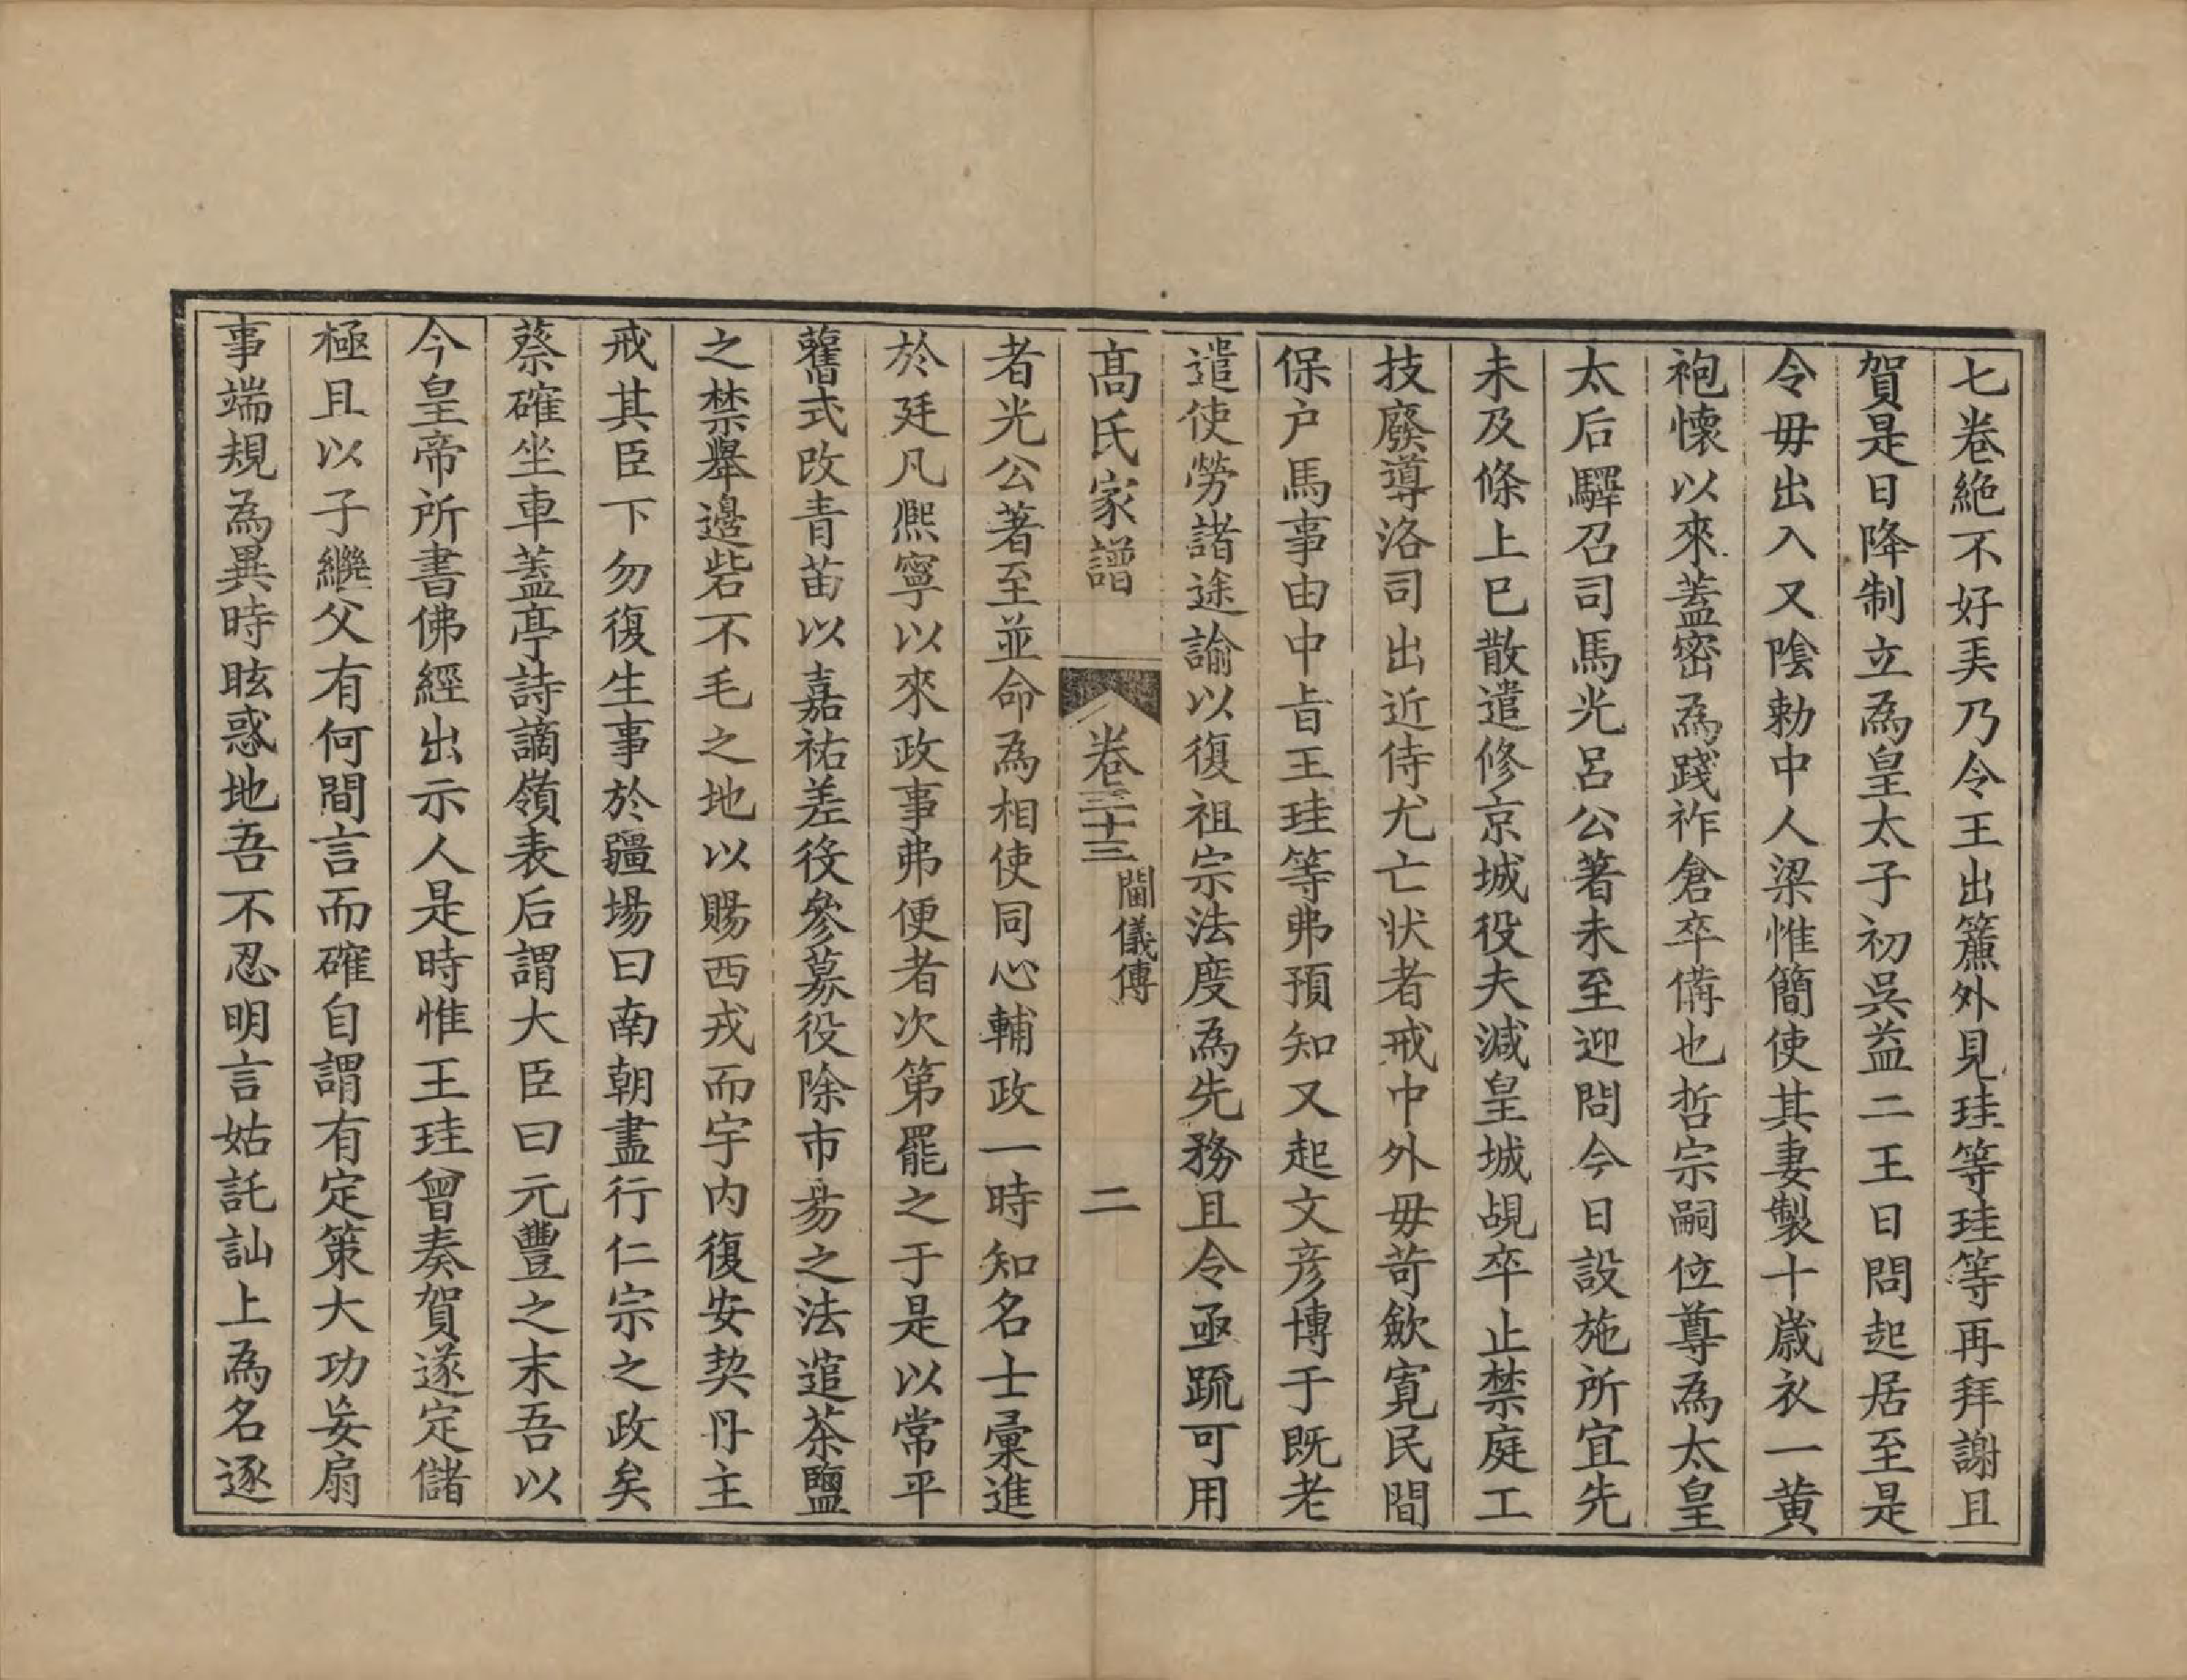 七卷絶不好美乃令王出簾外見珪等珪等再拜謝且
賀是日降制立為皇太子初吳益二王日問起居至是
令毋出入又陰勅中人梁惟簡使其妻製十歲衣一黃
袍懷以來蓋密為踐祚倉卒備也哲宗嗣位尊為太皇
太后驛召司馬光呂公著未至迎問今日設施所宜先
未及條上已散遣修京城役夫減皇城覘卒止禁庭工
技廢導洛司出近侍尤亡狀者戒中外毋苛歛寬民間
保户馬事由中旨王珪等弗預知又起文彦博于既老
遣使勞諸途諭以復祖宗法度為先務且令亟疏可用
高氏家譜 卷三十三 閫儀傳 二
者光公著至並命為相使同心輔政一時知名士彙進
於廷凡熙寧以來政事弗便者次第罷之于是以常平
舊式改青苗以嘉祐差役參募役除市易之法逭茶鹽
之禁舉邊砦不毛之地以賜西戎而宇内復安契丹主
戒其臣下勿復生事於疆場曰南朝盡行仁宗之政矣
蔡確坐車蓋亭詩謫嶺表后謂大臣曰元豐之末吾以
今皇帝所書佛經出示人是時惟王珪曾奏賀遂定儲
極且以子繼父有何間言而確自謂有定策大功妄扇
事端規為異時眩惑地吾不忍明言姑託訕上為名逐